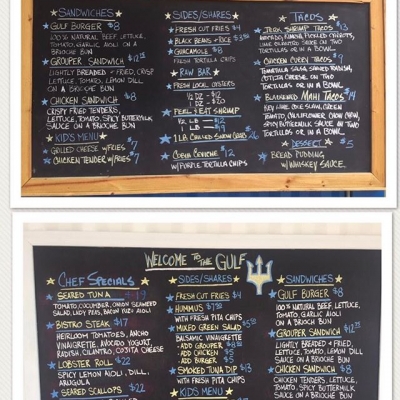 SANDWICHES
GULF BURGER $8
100% NATURAL BEEF, LETTUCE,
TOMATO, GARLIC AIOLI ON A
BRIOCHE BUN
GROUPER SANDWICH $12.95
LIGHTLY BREADED + FRIED, CRISP
LETTUCE, TOMATO, LEMON DILL
ON A BRIOCHE BUN
CHICKEN SANDWICH $8
CRISPY FRIED TENDERS,
LETTUCE, TOMATO, SPICY BUTTERMILK
SAUCE ON A BRIOCHE BUN
KIDS MENU
GRILLED CHEESE W/FRIES $7
CHICKEN TENDER W/FRIES $7
SIDES/SHARES
FRESH CUT FRIES $4
BLACK BEANS + RICE
GUACAMOLE $8
FRESH TORTILLA CHIPS
RAW BAR
FRESH LOCAL OYSTERS
1/2 DZ -
DZ - $20
PEEL & EAT SHRIMP
1/2 LB - $12
LB
1 LB CHILLED SNOW CRABS
CUBAN CEVICHE $12
W/ PURPLE TORTILLA CHIPS
TACOS
JERK SHRIMP TACOS $13
TORTILLAS OR IN A BOWL
CHICKEN CURRY TACOS $9
TORTILLAS OR IN A BOWL.
BLACKENED MAHI TACOS $14
KEY LIME COLE SLAW, GREEN
TOMATO, CAULIFLOWER, CHOW CHOW,
SPICY BUTTERMILK SAUCE ON TWO
TORTILLAS OR IN A BOWL
DESSERT $5
BREAD PUDDING
W/ WHISKEY SAUCE
WELCOME TO THE GULF
CHEF SPECIALS
SEARED TUNA
TOMATO, CUCUMBER, ONION, SEAWEED
SALAD, LADY PEAS, BACON FUZU AIOLI
BISTRO STEAK $17
HEIRLOOM TOMATOES, ANCHO
VINAIGRETTE, AVOCADO YOGURT,
RADISH, CILANTRO, COJITA CHEESE
LOBSTER ROLL $22
SPICY LEMON AIOLI, DILL,
ARUGULA
SEARED SCALLOPS $22
SIDES/SHARES
FRESH CUT FRIES $4
HUMMUS
WITH FRESH PITA CHIPS
MIXED GREEN SALAD
BALSAMIC VINAIGRETTE
- ADD GROUPER $8
- ADD CHICKEN $5
- ADD BURGER
SMOKED TUNA DIP $13
WITH FRESH PITA CHIPS
KIDS MENU
SANDWICHES
GULF BURGER $8
100% NATURAL BEEF, LETTUCE,
TOMATO, GARLIC AIOLI
ON A BRIOCH BUN
GROUPER SANDWICH $12.95
LIGHTLY BREADED & FRIED,
LETTUCE, TOMATO, LEMON DILL
SAUCE ON A BRIOCHE BUN
CHICKEN SANDWICH $8
CHICKEN TENDERS, LETTUCE,
TOMATO, SPICY BUTTERMILK
SAUCE ON A BRIOCHE BUN